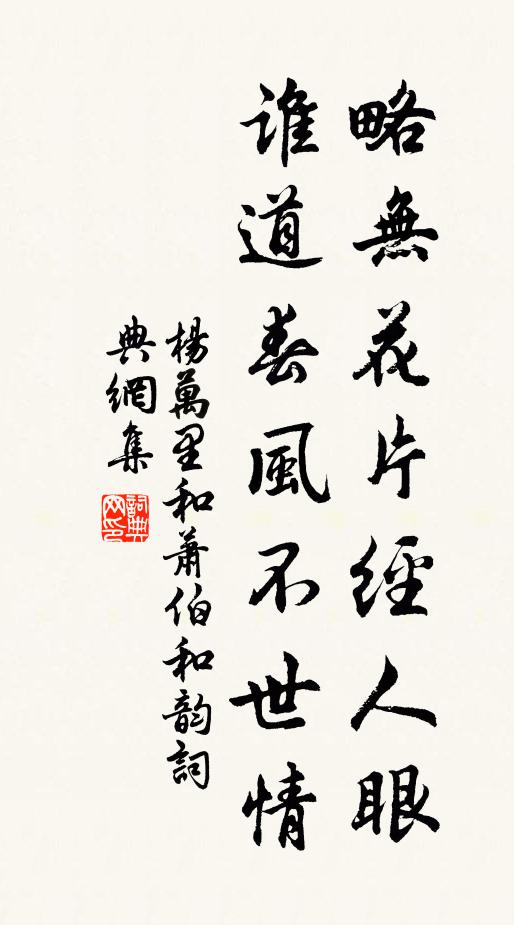 略無花片經人眼
誰道春風不世情
楊萬里和蕭伯和韵詞
典網集
詞典網印